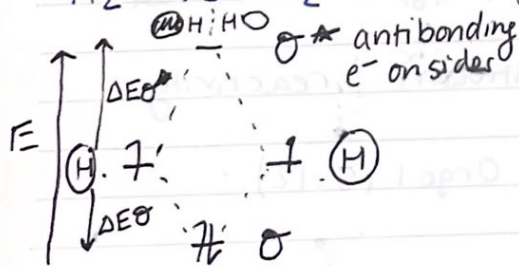 H⋮HO σ* antibonding
e⁻ on sides
ΔEσ*
E
H H
ΔEσ
σ
Orgo 1